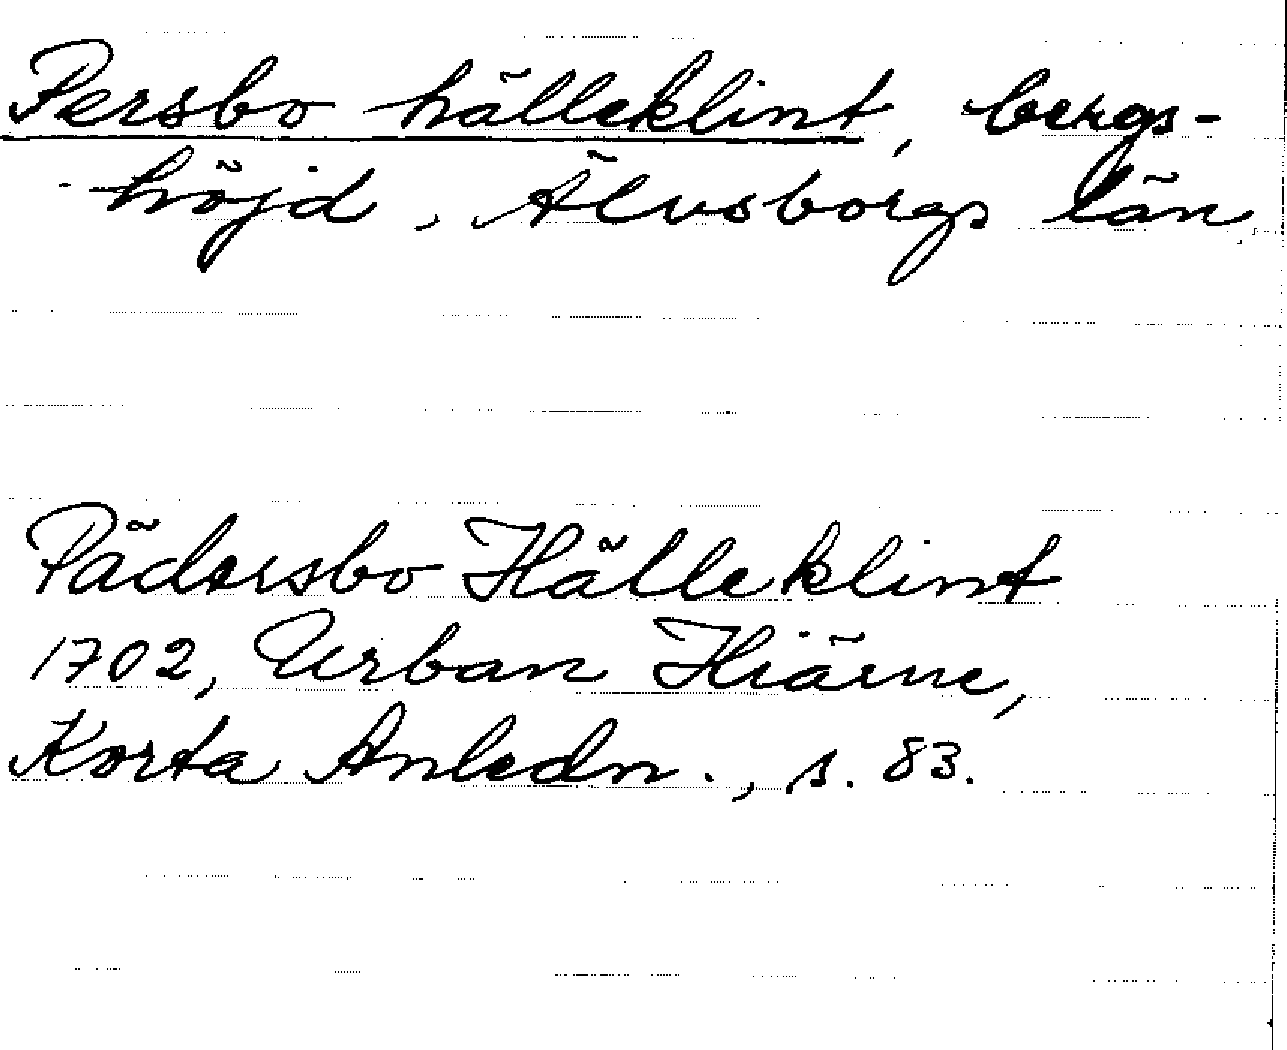 Persbo hälleklint, bergs-
höjd, Älvsborgs län
Pädersbo Hälleklint
1702, Urban Hiärne,
Korta Anledn., s. 83.